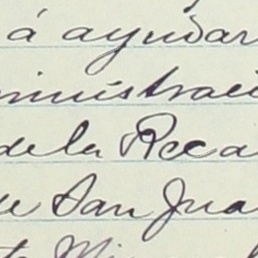 á ayudar
ministraci
de la Rec
de San Jua